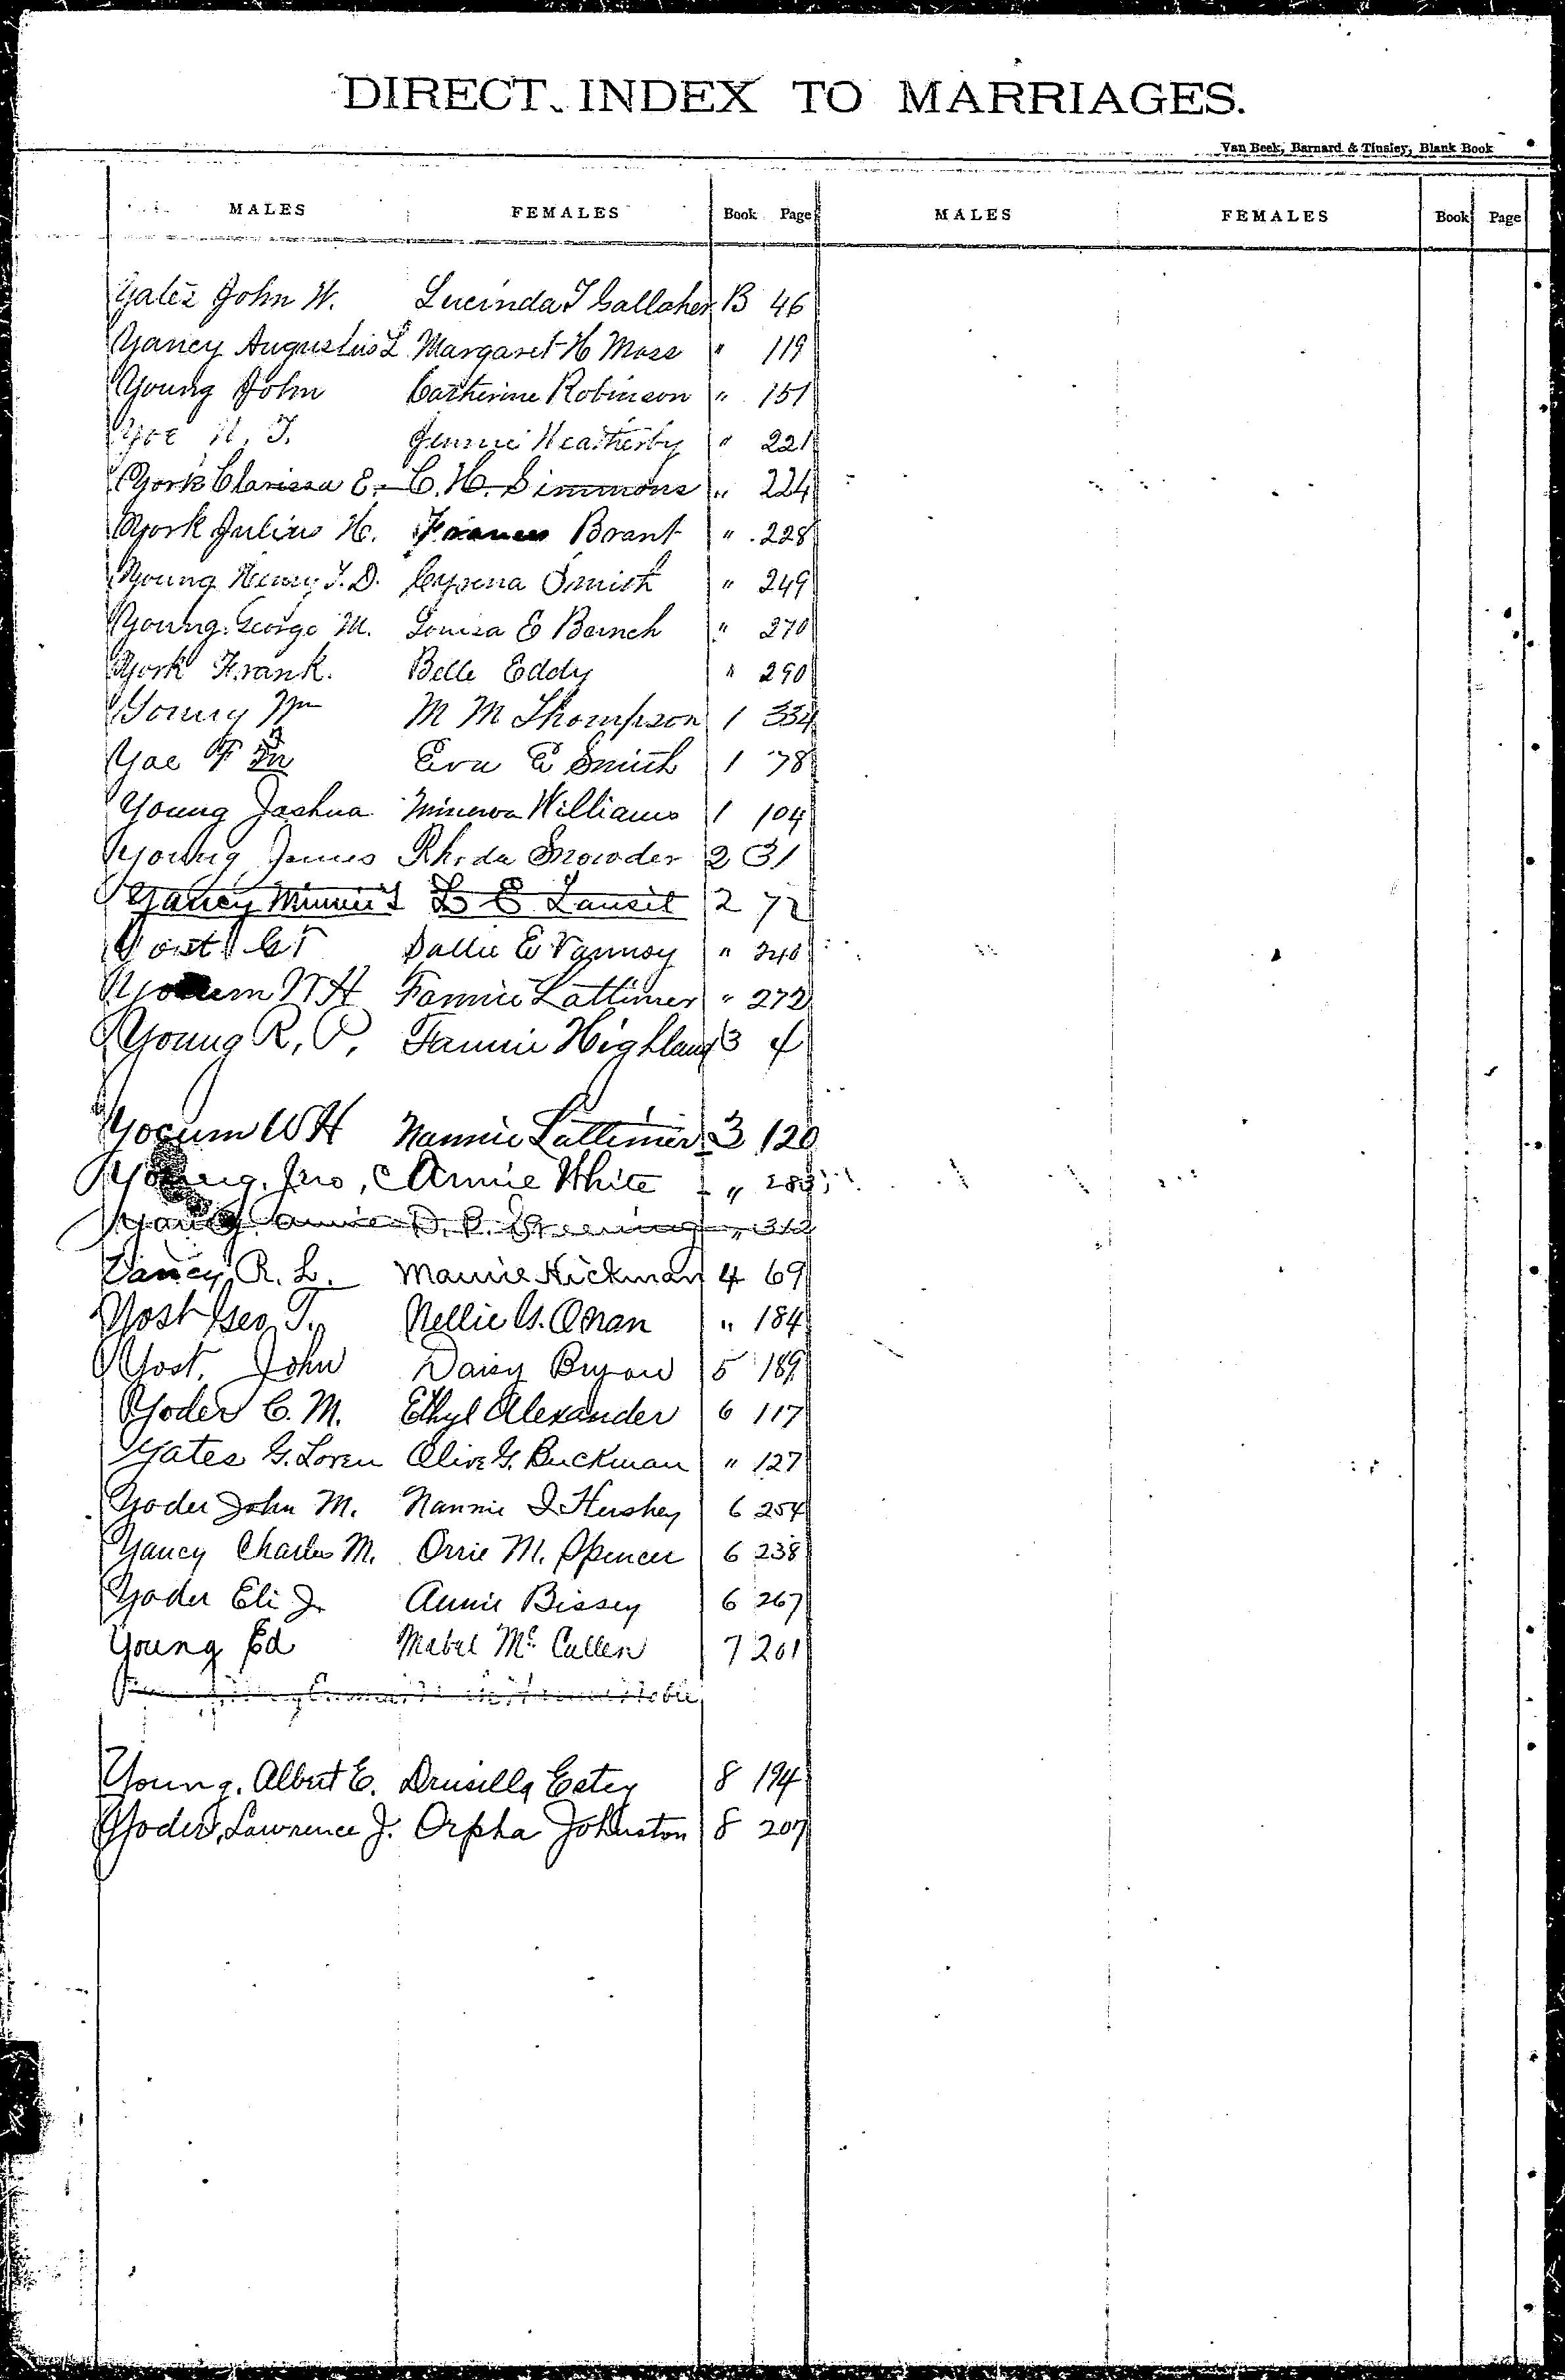 DIRECT INDEX TO MARRIAGES.
Van Beek, Barnard & Tinsley, Blank Book
MALES FEMALES Book Page MALES FEMALES Book Page
Yates John W. Lucinda T Gallaher B 46
Yancy Augustus L Margaret H Moss " 119
Young John Catherine Robinson " 151
Yoe T. Jennie Weatherby " 221
York Clarissa E. C. H. Simmons " 224
York Julius H. Frances Brant " 228
Young Henry T. D. Cyrena Smith " 249
Young George M. Louisa E " 270
York Frank. Belle Eddy " 290
Young Wm M M Thompson 1 334
Yoe F Eva E Smith 1 78
Young Joshua Minerva Williams 1 104
Young James Rhoda Snowder 2 31
Yancy Minnie L E 2 72
Yost G T Sallie E Vannoy " 240
Yocum W H Fannie Lattimer " 272
Young R, P, Fannie Highland 3 4
Yocum W H Nannie Lattimer 3 120
Young, Jno, Annie White " 283
Yancy Annie D. P. Greening " 312
Yancy, R. L. Mamie Hickman 4 69
Yost Geo T. Nellie G. Onan " 184
Yost, John Daisy Bryan 5 189
Yoder C. M. Ethyl Alexander 6 117
Yates G. Loren Olive G. Buckman " 127
Yoder John M. Nannie I Hershey 6 254
Yancy Charles M. Orrie M. Spencer 6 238
Yoder Eli J. Annie Bissey 6 267
Young Ed Mabel Mc Cullen 7 201
Young, Albert E. Drusilla Estey 8 194
Yoder, Lawrence J. Orpha Johnston 8 207